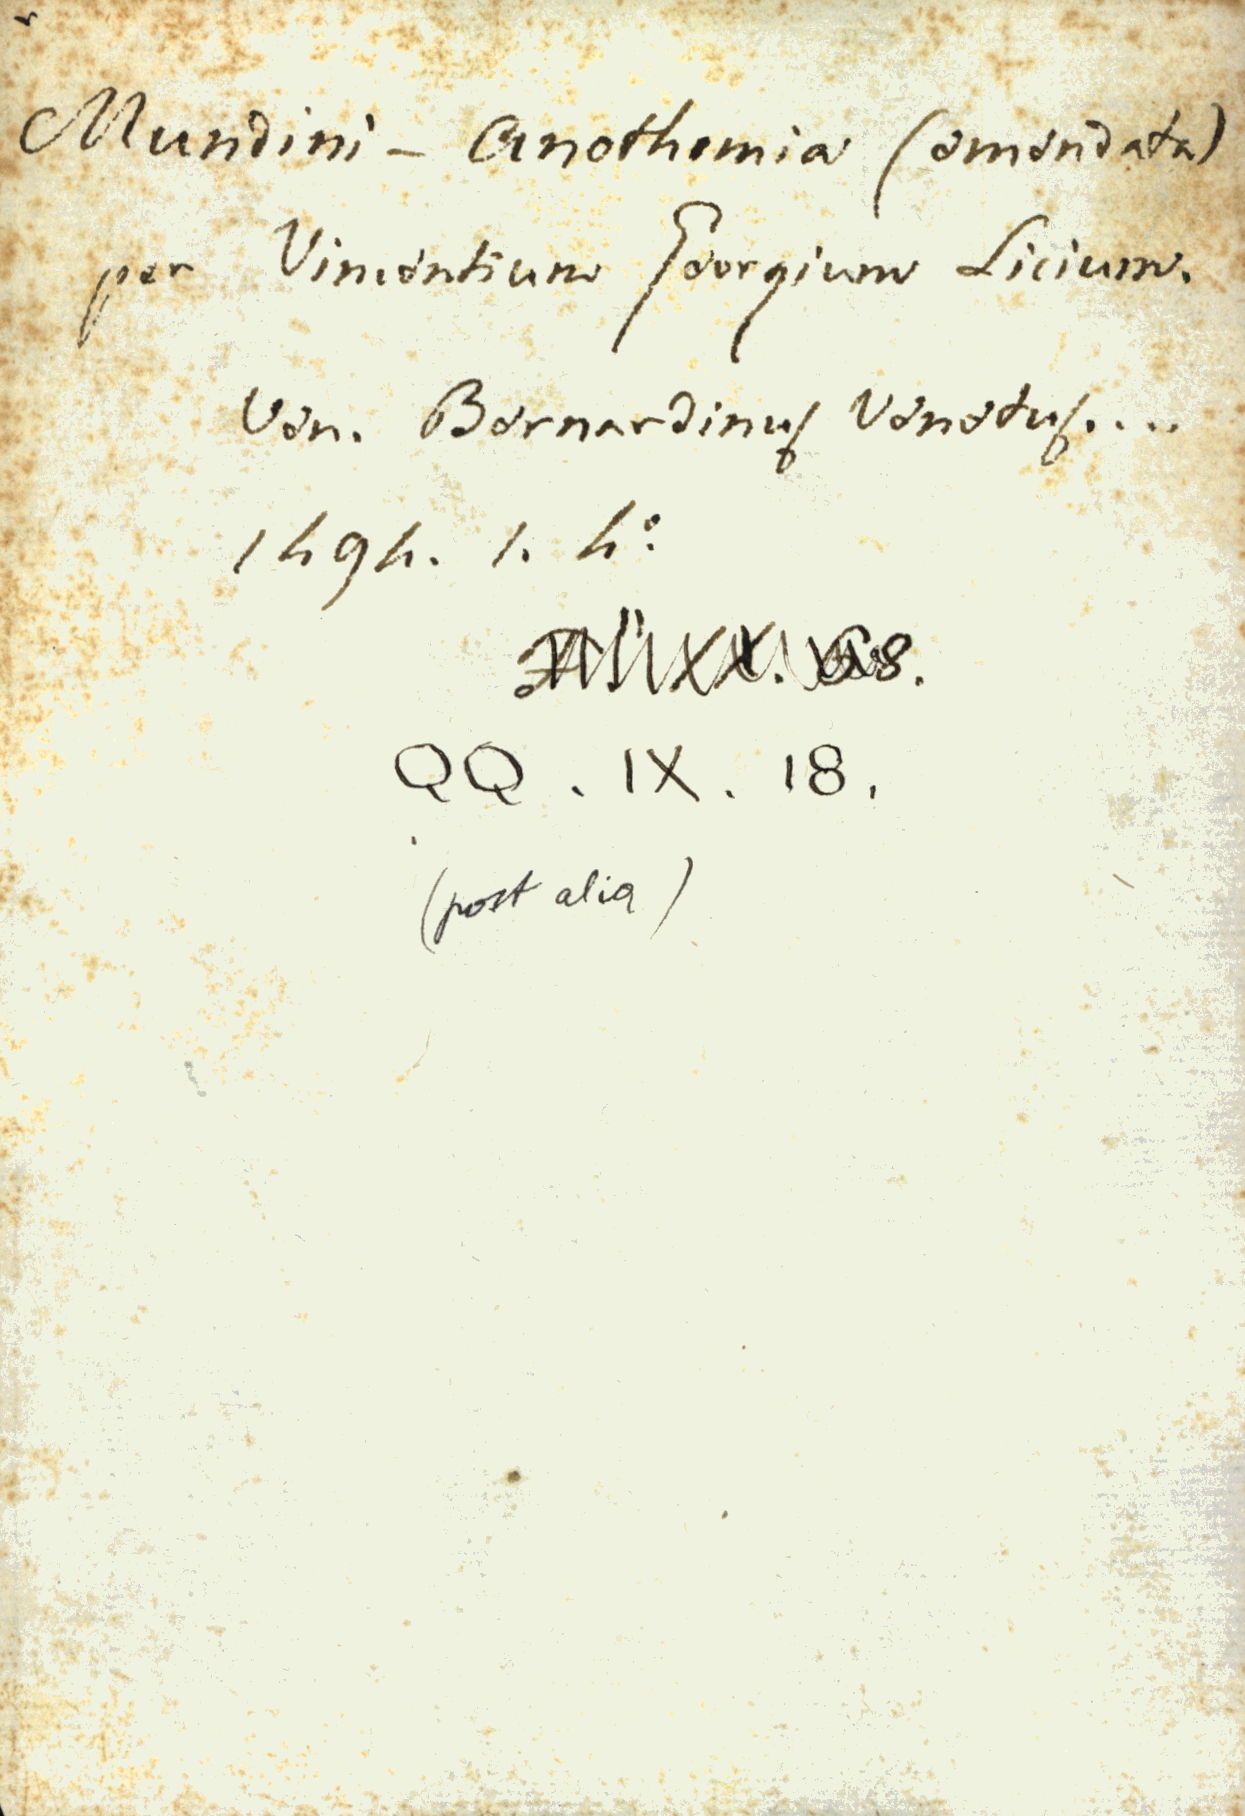 Mundini - Anothomia (emendata)
per Vincentium Georgium Licium.
Ven. Bernardinus Venetus....
1494. 1. 4°:
QQ. IX. 18.
(post alia)